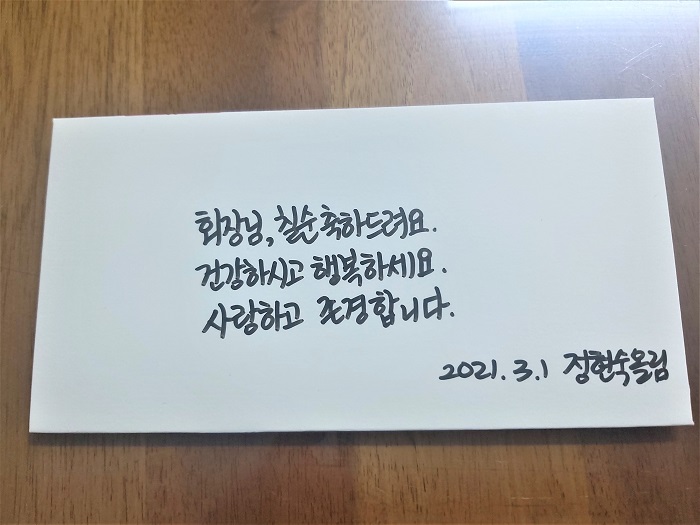 회장님, 칠순 축하드려요.
건강하시고 행복하세요.
사랑하고 존경합니다.
2021. 3. 1 정현숙올림